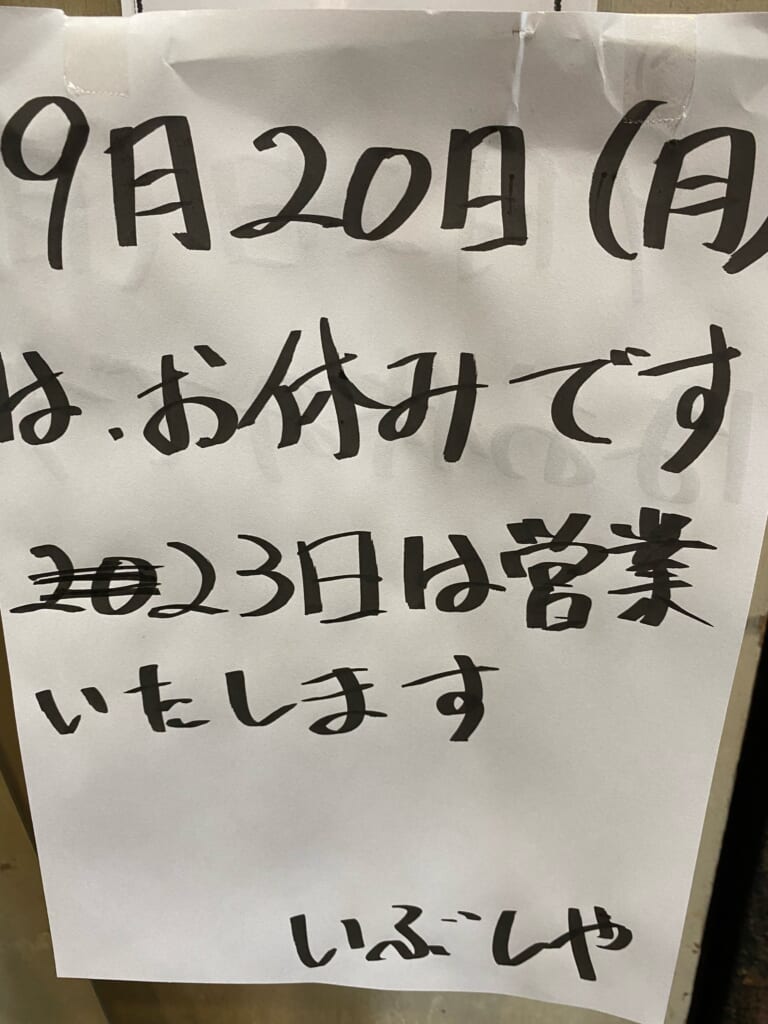 9月20日(月)
は、お休みです
23日は営業
いたします
いぶしや